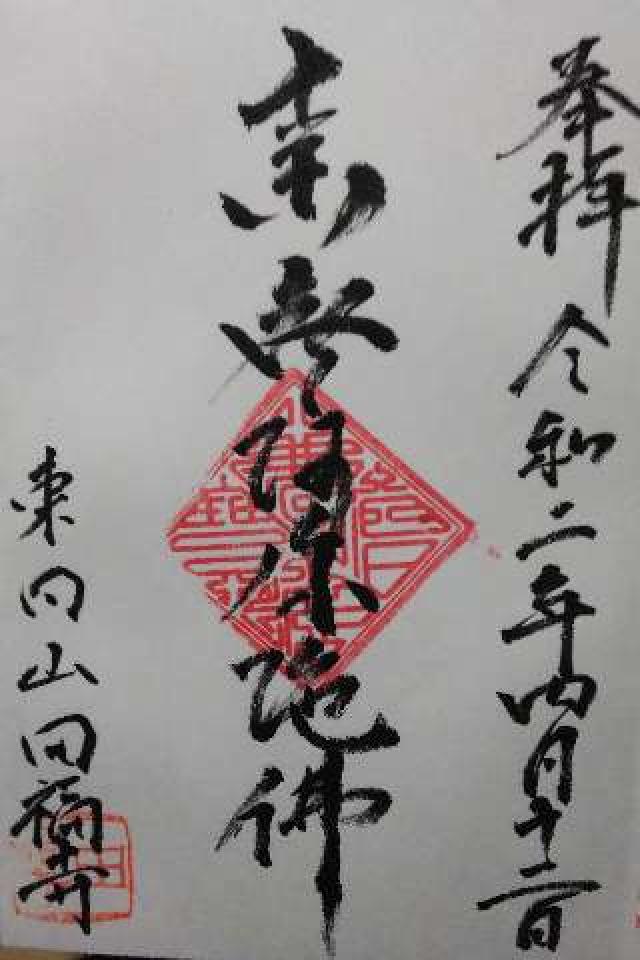 奉拝 令和二年四月十二日
南無阿弥陀佛
東向山 円福寺